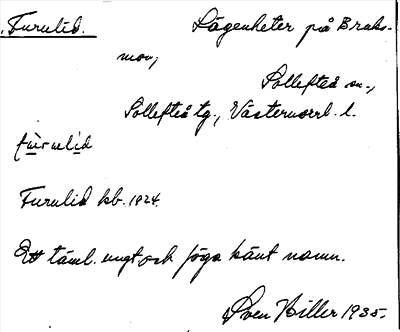 Furulid. Lägenheter på Bruks-
mon,
Sollefteå sn.,
Sollefteå tg., Västernorrl. l.
fùrulìd
Furulid kb. 1924.
Ett täml. ungt och föga känt namn.
Sven Hiller 1935.